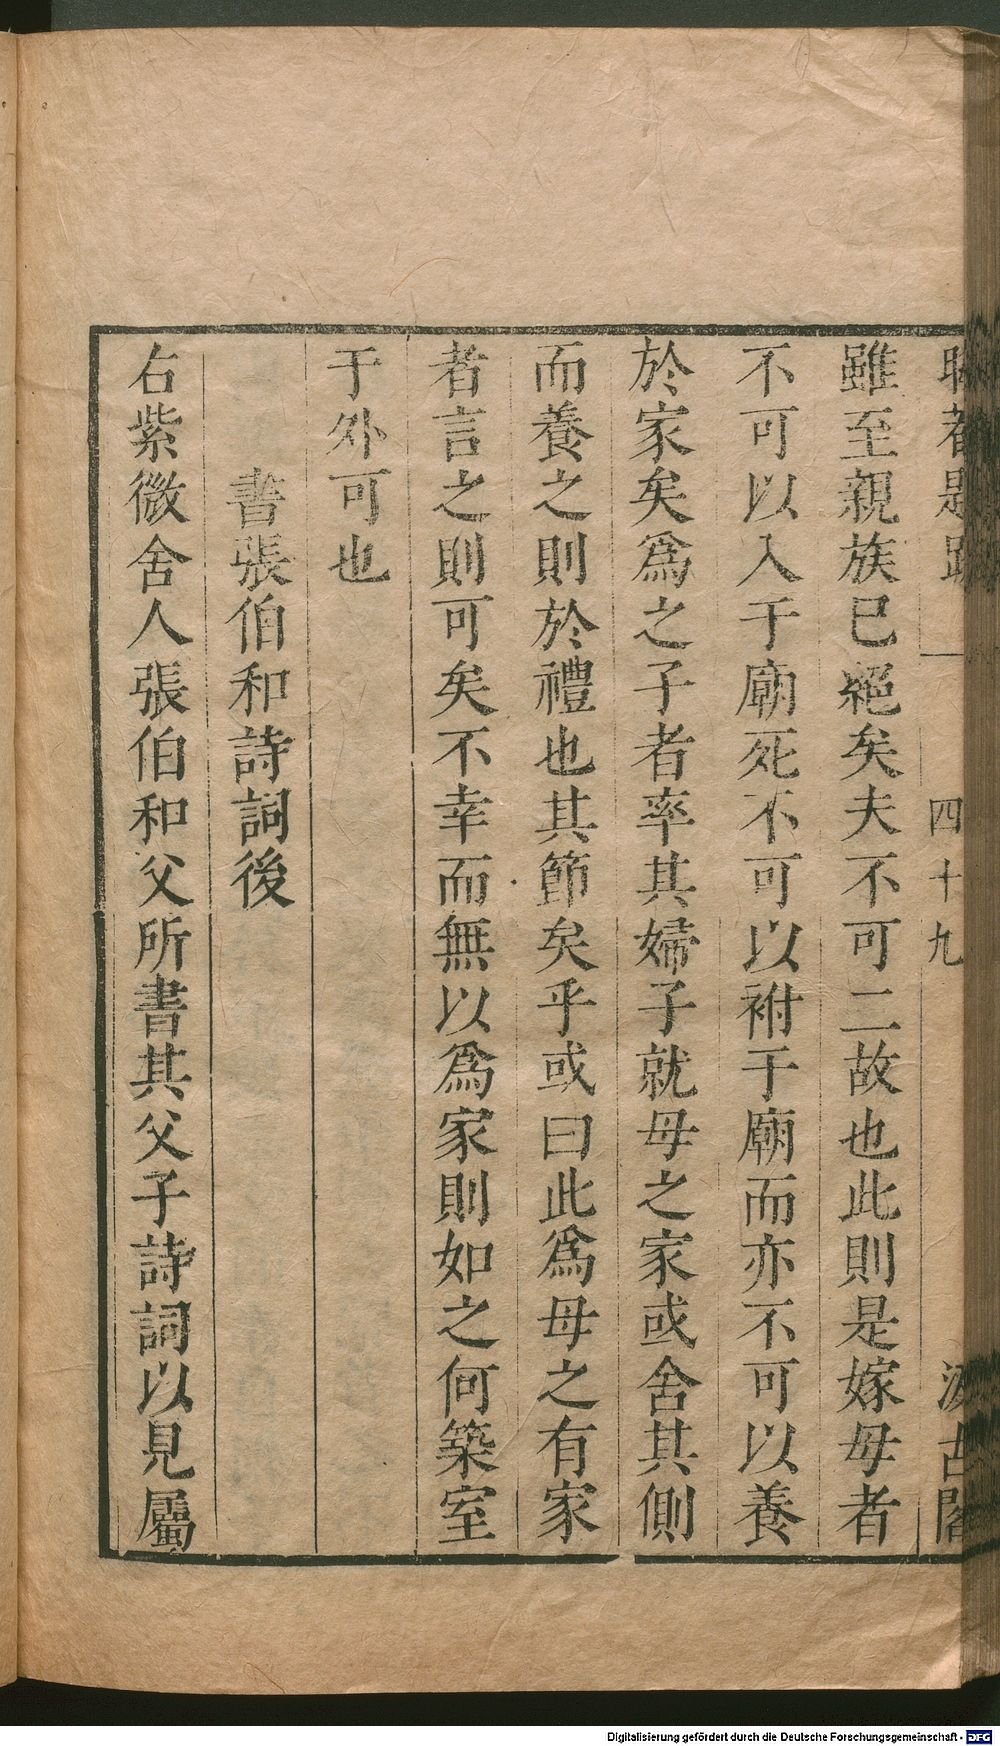 雖至親族已絕矣夫不可二故也此則是嫁母者
不可以入于廟死不可以祔于廟而亦不可以養
於家矣爲之子者率其婦子就母之家或舍其側
而養之則於禮也其節矣乎或曰此爲母之有家
者言之則可矣不幸而無以爲家則如之何築室
于外可也
書張伯和詩詞後
右紫微舍人張伯和父所書其父子詩詞以見屬
四十九
汲古閣
Digitalisierung gefördert durch die Deutsche Forschungsgemeinschaft - DFG